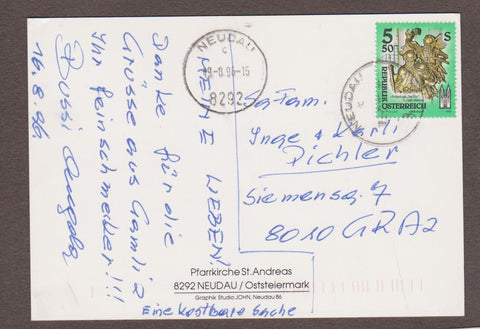 MEINE LIEBEN!
Danke für die
Grüsse aus Gamlitz
Ihr Feinschmecker!!!
Bussi Angela
16.8.96
NEUDAU
c
19-8.96-15
8292
5 50 S
REPUBLIK
ÖSTERREICH
NEUDAU
c
Fam.
Inge & Karli
Pichler
Siemensg. 7
8010 GRAZ
Pfarrkirche St. Andreas
8292 NEUDAU / Oststeiermark
Graphik Studio JOHN, Neudau 86
Eine kostbare Sache